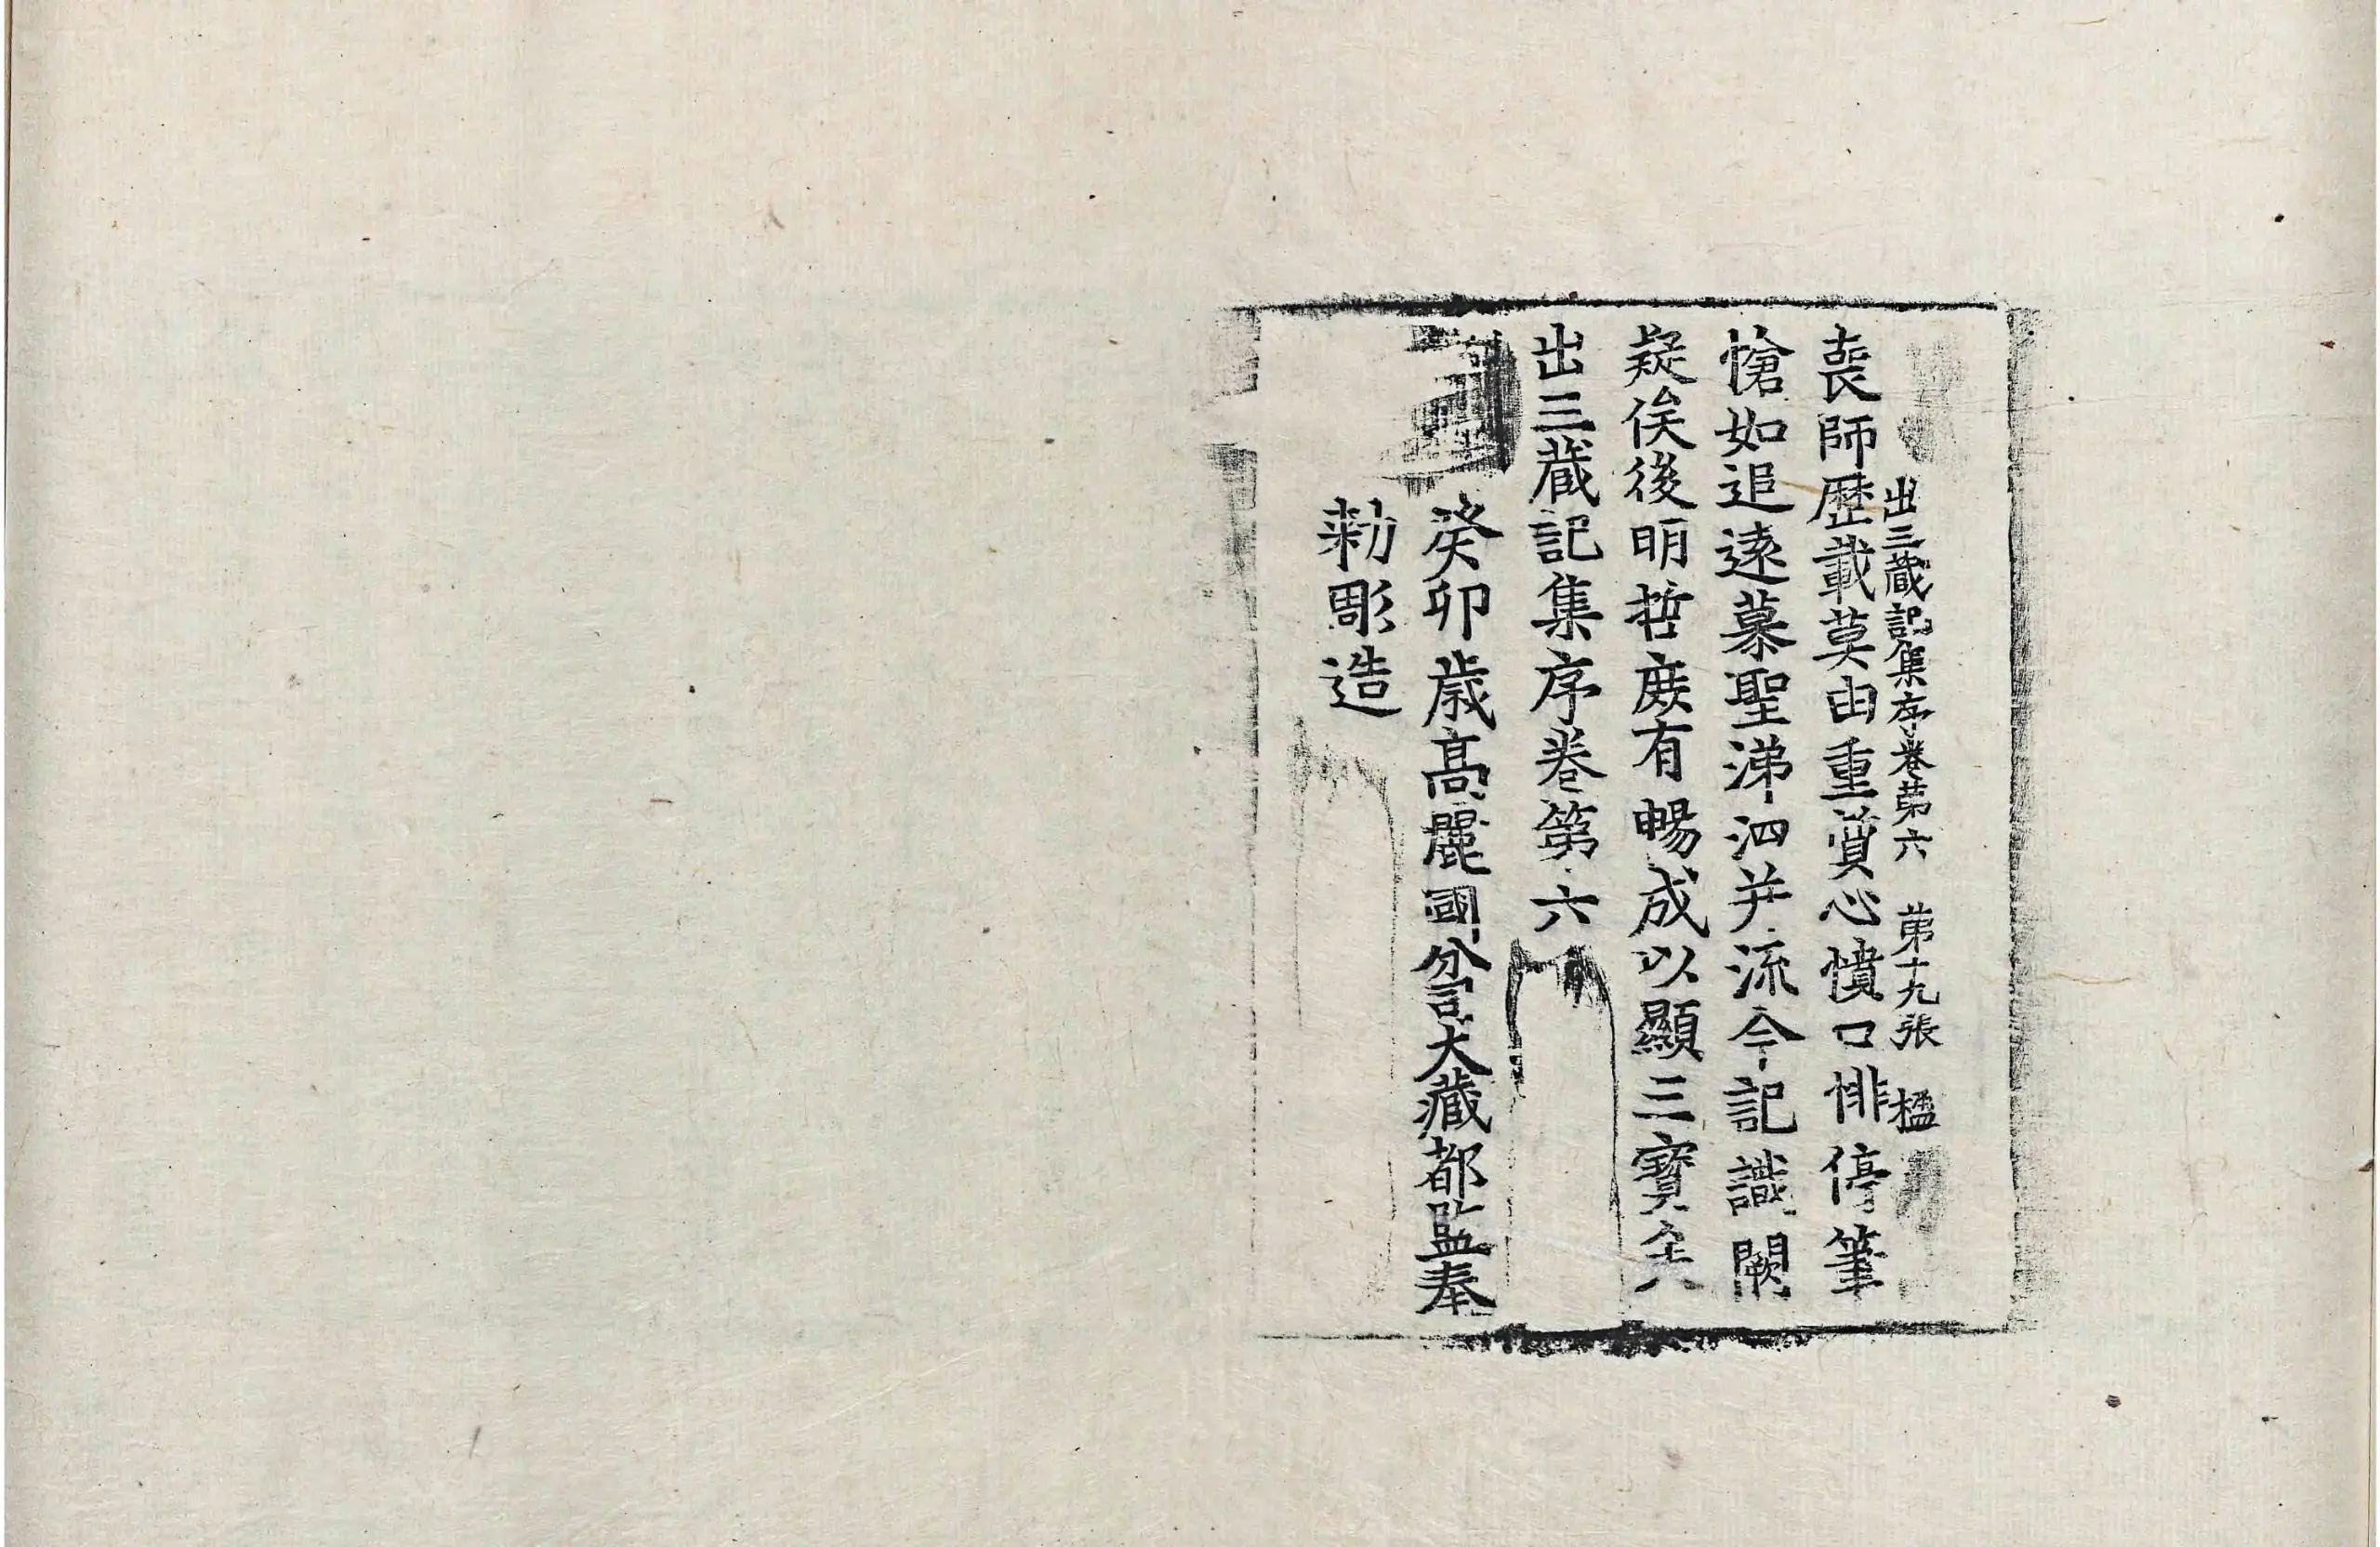 出三蔵記集序卷苐六 苐十九張 楹
喪師歷載莫由重質心憤口悱停筆
愴如追遠慕聖涕泗并流今記識闕
疑俟後明哲庻有暢成以顯三寶矣
出三蔵記集序卷第六
癸卯歲高麗國分司大藏都監奉
勅彫造